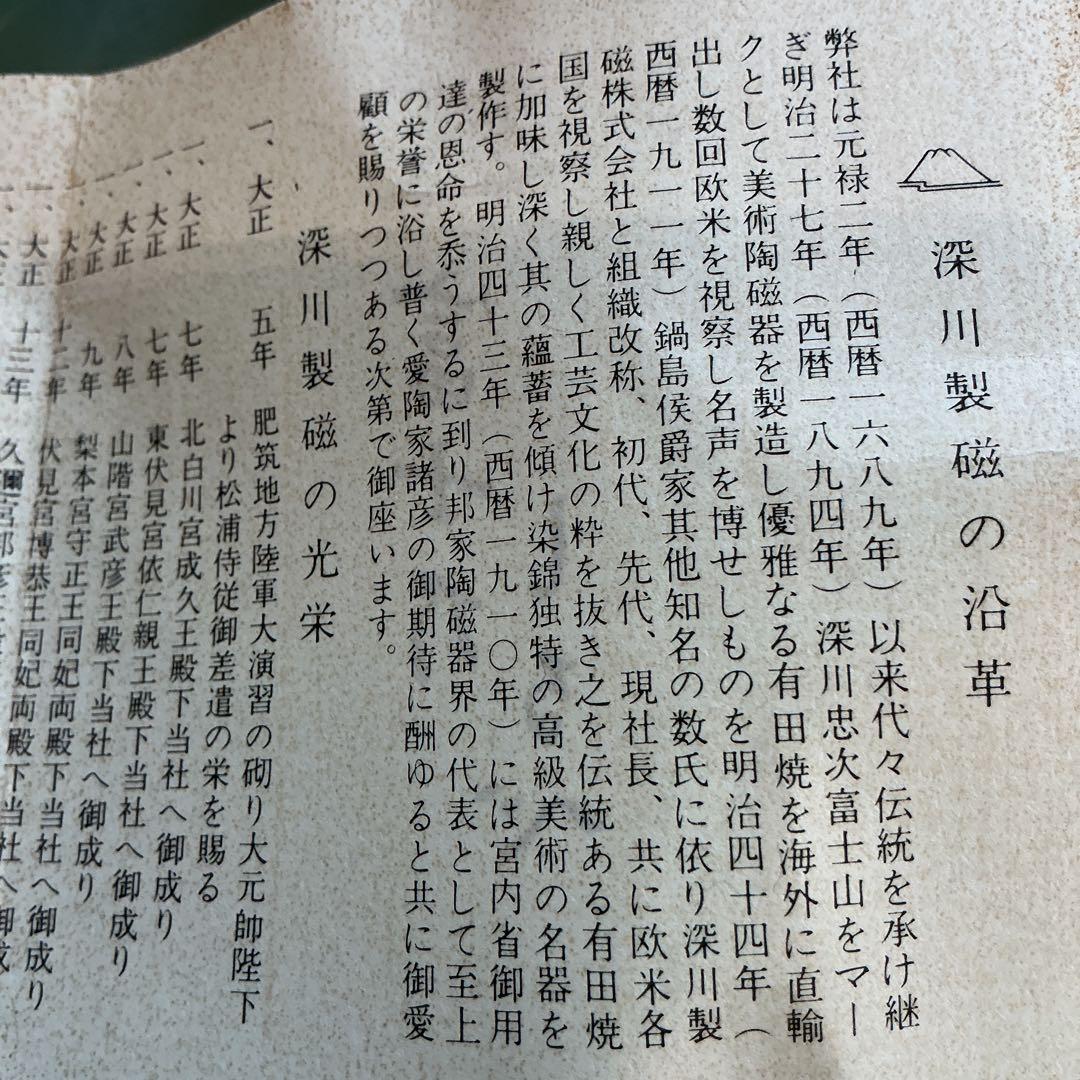 深川製磁の沿革
弊社は元禄二年（西暦一六八九年）以来代々伝統を承け継
ぎ明治二十七年（西暦一八九四年）深川忠次富士山をマー
クとして美術陶磁器を製造し優雅なる有田焼を海外に直輸
出し数回欧米を視察し名声を博せしものを明治四十四年（
西暦一九一一年）鍋島侯爵家其他知名の数氏に依り深川製
磁株式会社と組織改称、初代、先代、現社長、共に欧米各
国を視察し親しく工芸文化の粋を抜き之を伝統ある有田焼
に加味し深く其の蘊蓄を傾け染錦独特の高級美術の名器を
製作す。明治四十三年（西暦一九一〇年）には宮内省御用
達の恩命を忝うするに到り邦家陶磁器界の代表として至上
の栄誉に浴し普く愛陶家諸彦の御期待に酬ゆると共に御愛
顧を賜りつつある次第で御座います。
深川製磁の光栄
一、大正 五年 肥筑地方陸軍大演習の砌り大元帥陛下
より松浦侍従御差遣の栄を賜る
一、大正 七年 北白川宮成久王殿下当社へ御成り
一、大正 七年 東伏見宮依仁親王殿下当社へ御成り
一、大正 八年 山階宮武彦王殿下当社へ御成り
一、大正 九年 梨本宮守正王同妃両殿下当社へ御成り
一、大正 十二年 伏見宮博恭王同妃両殿下当社へ御成り
一、大正 十三年 久邇宮邦彦王